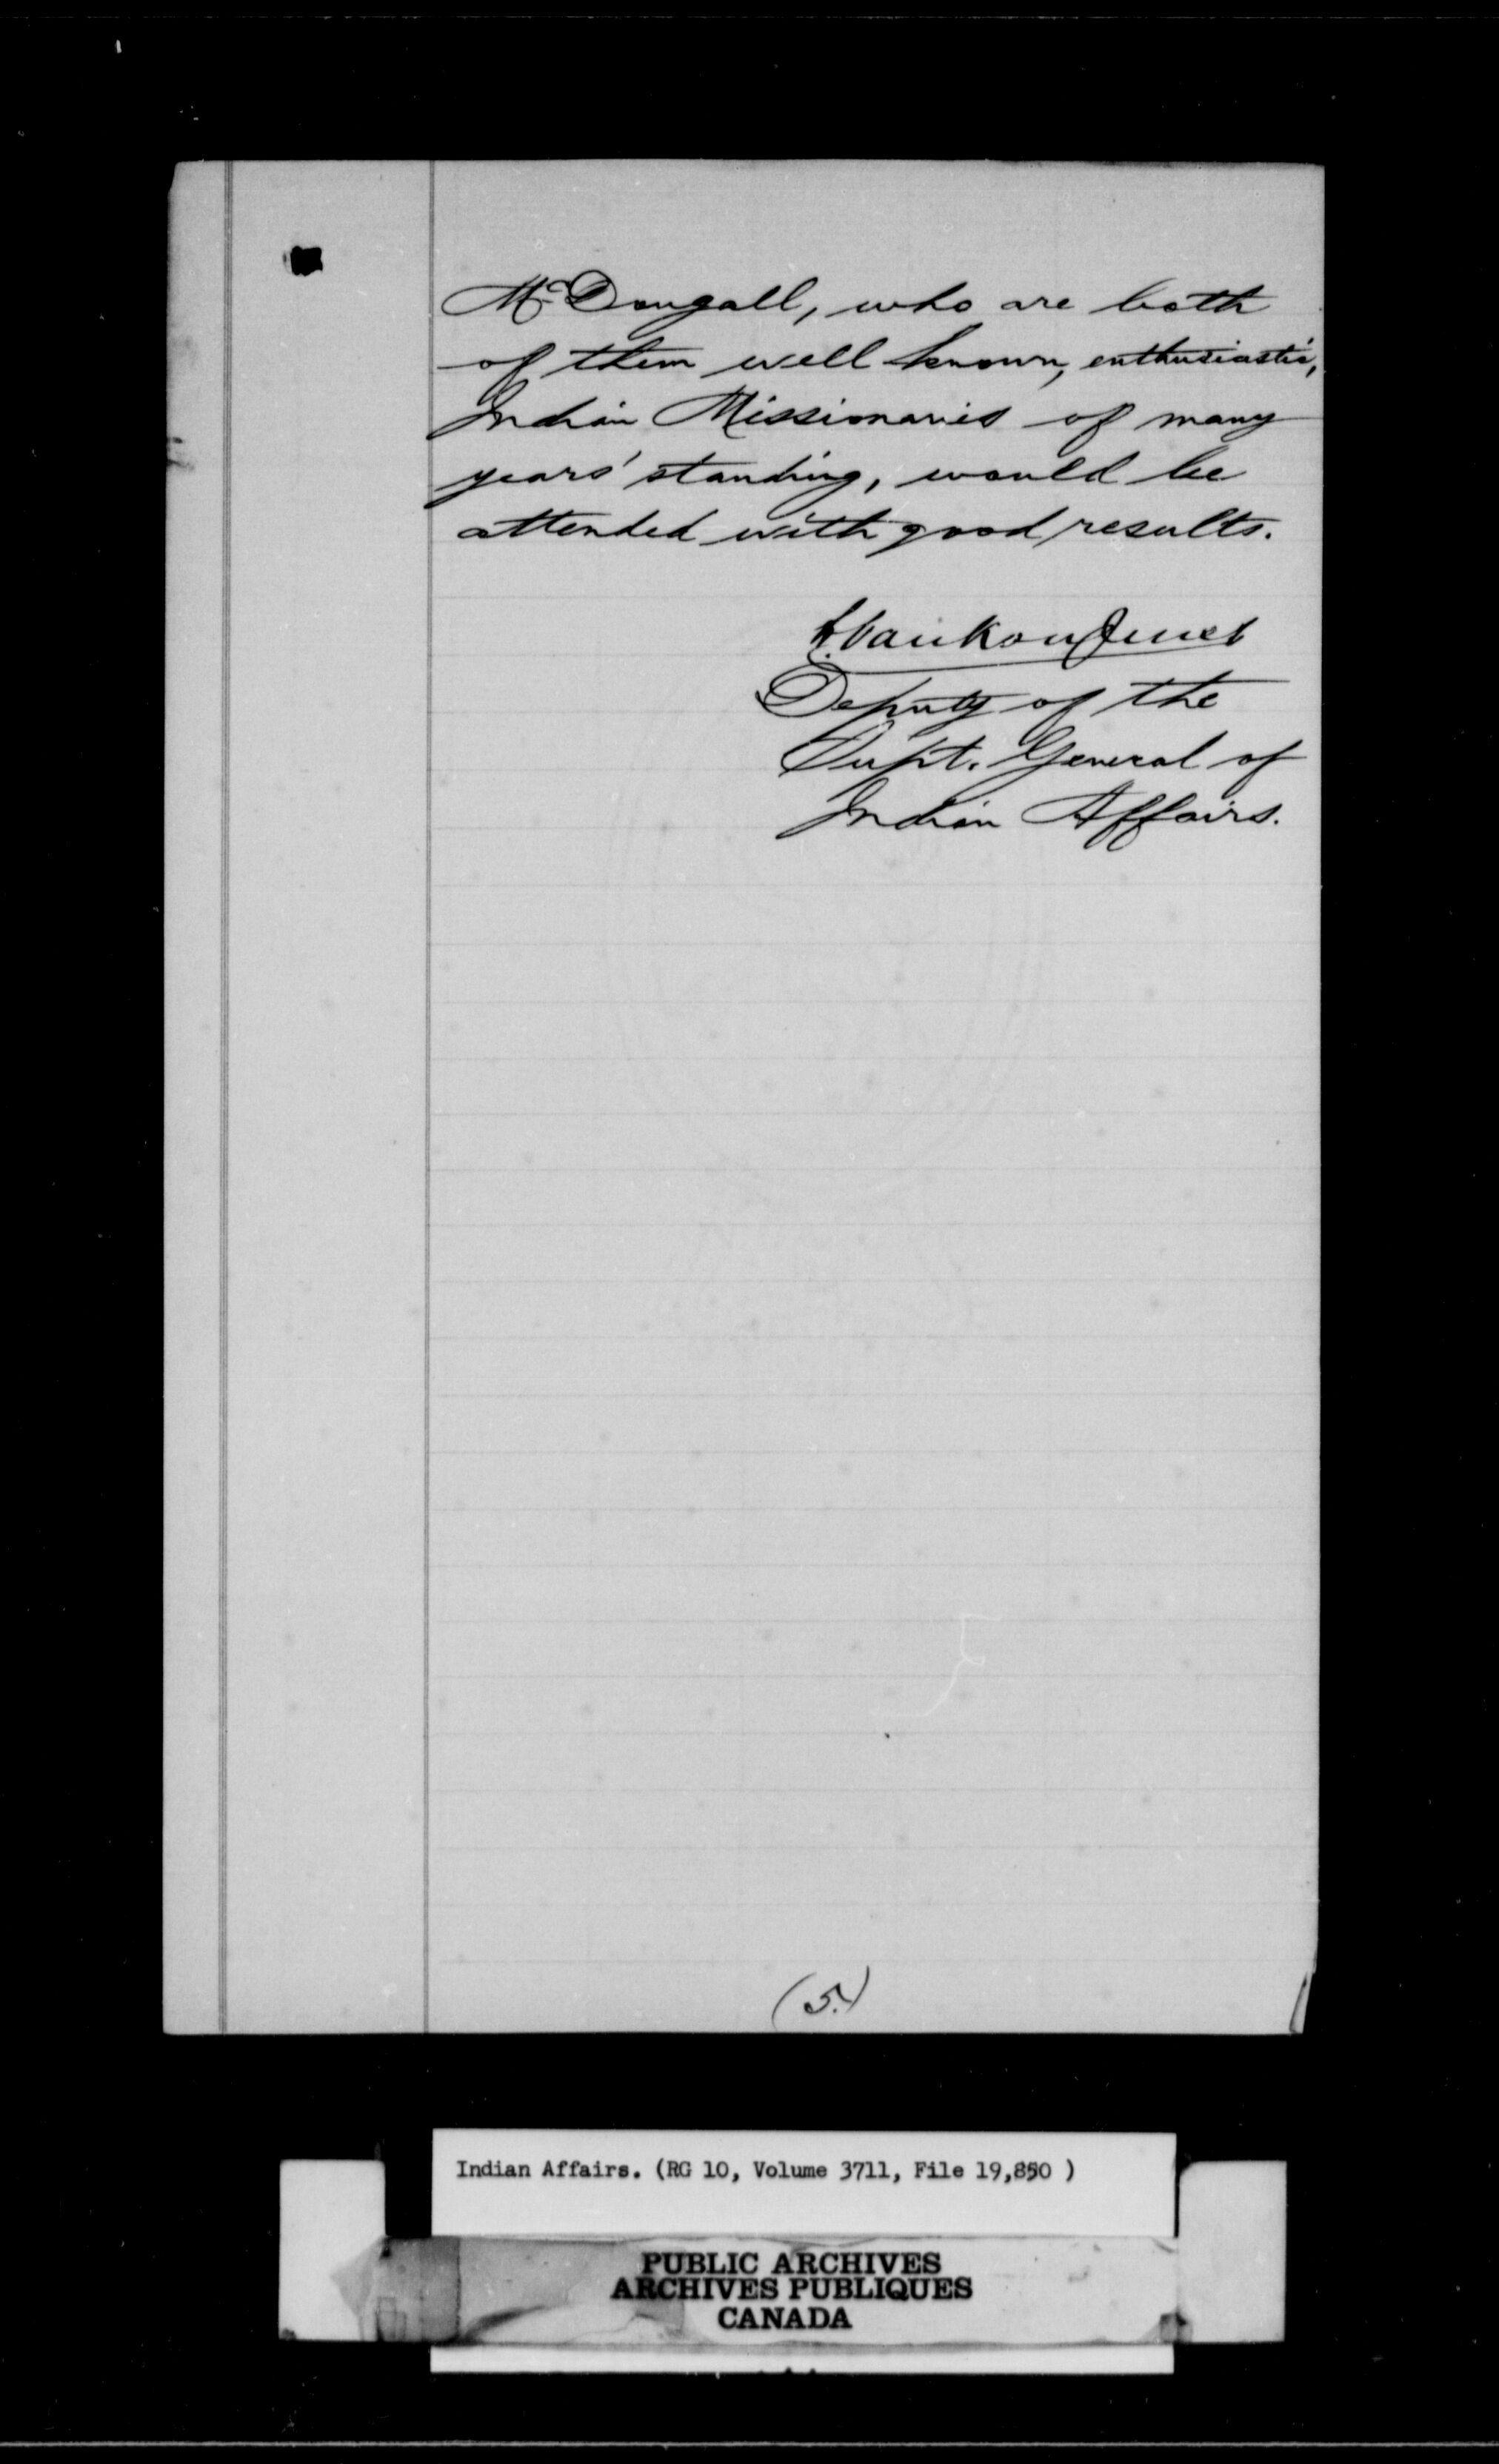 McDougall, who are both
of them well known, enthusiastic,
Indian Missionaries of many
years' standing, would be
attended with good results.
L. Vankoughnet
Deputy of the
Supt. General of
Indian Affairs.
(5.)
Indian Affairs. (RG 10, Volume 3711, File 19,850 )
PUBLIC ARCHIVES
ARCHIVES PUBLIQUES
CANADA